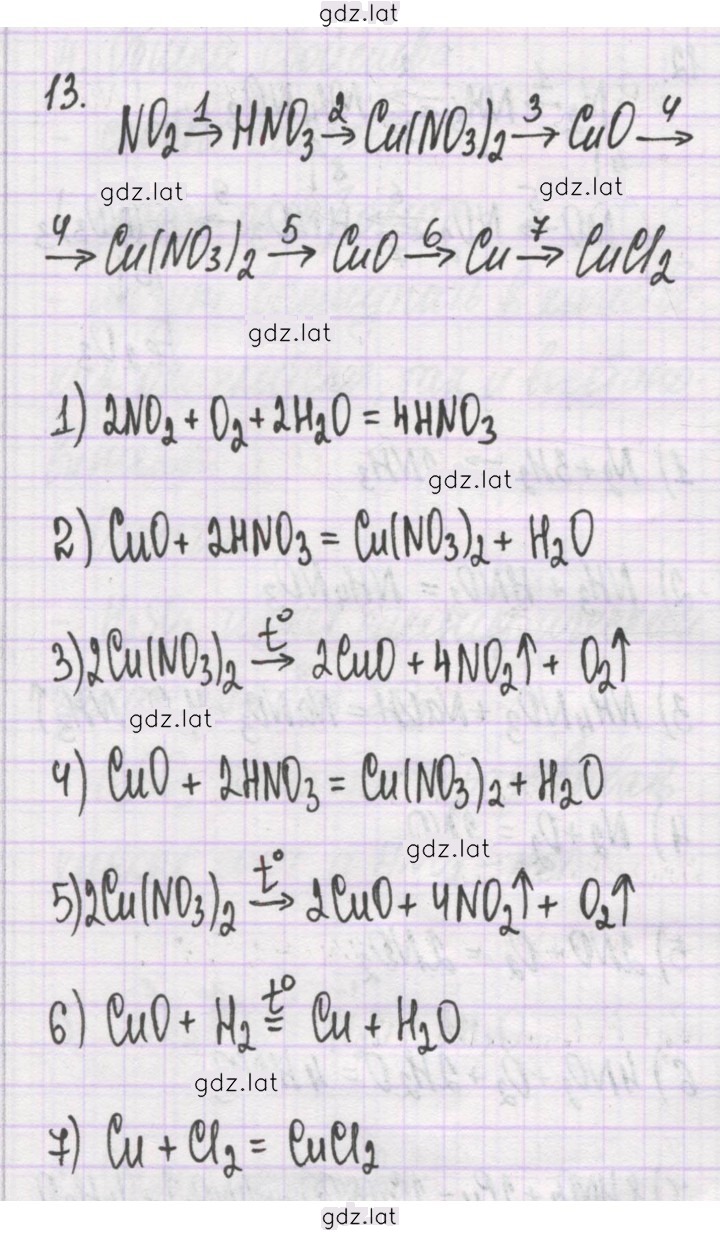 gdz.lat
13.
NO₂ →¹ HNO₃ →² Cu(NO₃)₂ →³ CuO →⁴
gdz.lat gdz.lat
→⁴ Cu(NO₃)₂ →⁵ CuO →⁶ Cu →⁷ CuCl₂
gdz.lat
1) 2NO₂ + O₂ + 2H₂O = 4HNO₃
gdz.lat
2) CuO + 2HNO₃ = Cu(NO₃)₂ + H₂O
3) 2Cu(NO₃)₂ →t° 2CuO + 4NO₂↑ + O₂↑
gdz.lat
4) CuO + 2HNO₃ = Cu(NO₃)₂ + H₂O
gdz.lat
5) 2Cu(NO₃)₂ →t° 2CuO + 4NO₂↑ + O₂↑
6) CuO + H₂ =t° Cu + H₂O
gdz.lat
7) Cu + Cl₂ = CuCl₂
gdz.lat